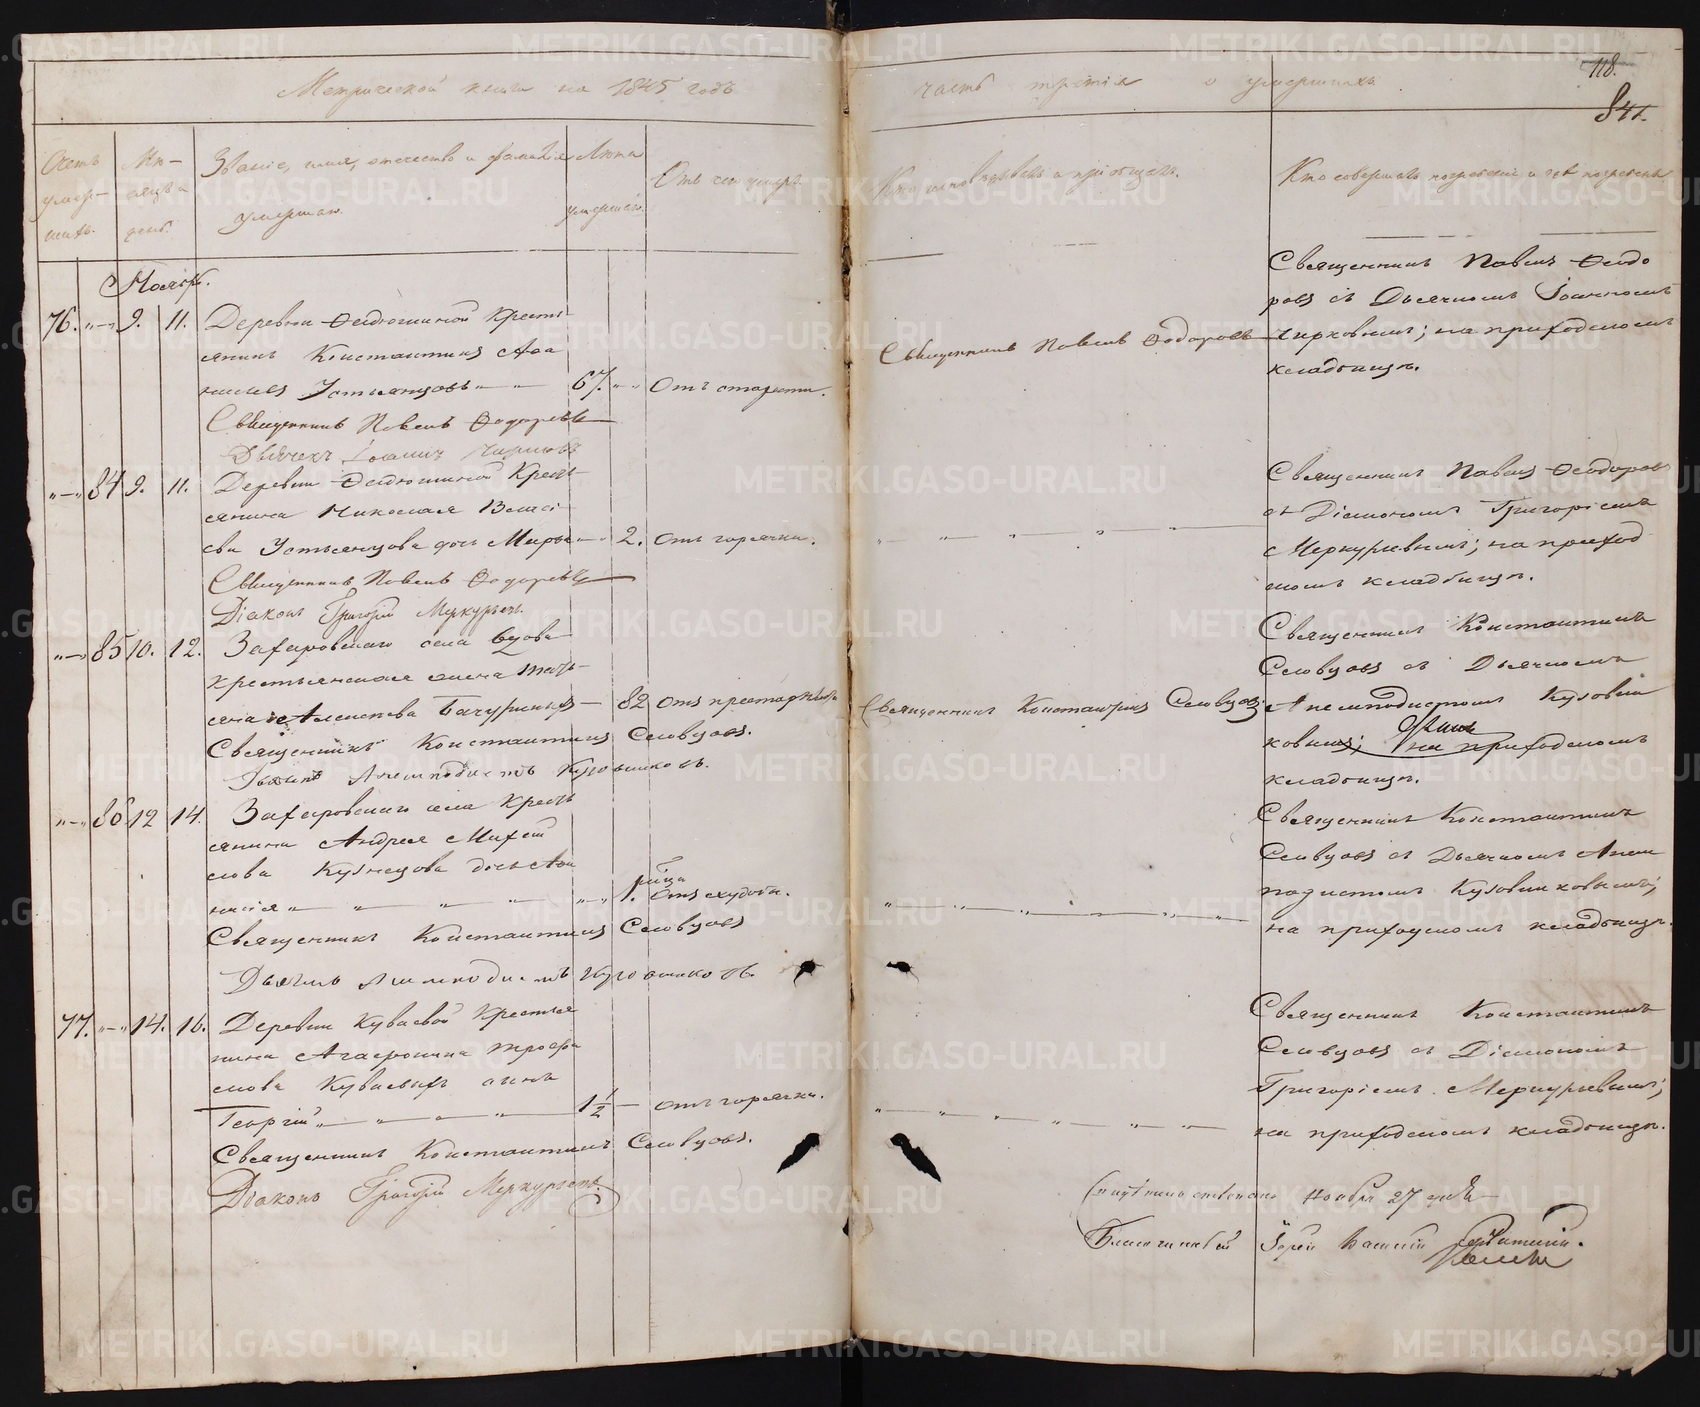 METRIKI.GASO-URAL.RU
Метрической книги на 1845 годъ
часть третія о умершихъ
118.
841.
Счетъ умер- шихъ.
Мѣ- сяцъ и день.
Званіе, имя, отечество и фамилія умершаго.
Лѣта умершаго.
Отъ чего умеръ.
Кто исповѣдывалъ и пріобщалъ.
Кто совершалъ погребеніе и гдѣ погребены
Ноябрь.
76. 9. 11. Деревни Ѳедюшиной Кресть-
янинъ Константинъ Аѳа
насьевъ Устьянцовъ 67. Отъ старости.
Священникъ Павелъ Ѳедоровъ
Дьячекъ Іоаннъ Чирковъ
Священникъ Павелъ Ѳедоровъ
Священникъ Павелъ Ѳеодо
ровъ съ Дьячкомъ Іоанномъ
Чирковымъ; на приходскомъ
кладбищѣ.
84 9. 11. Деревни Ѳедюшиной Кресть-
янина Николая
Устьянцова дочь Марья 2. Отъ горячки.
Священникъ Павелъ Ѳедоровъ
Діаконъ Григорій Меркурьевъ.
Священникъ Павелъ Ѳеодоровъ
съ Діакономъ Григоріемъ
Меркурьевымъ; на приход
скомъ кладбищѣ.
85 10. 12. Захаровскаго села вдова
крестьянская жена Тать-
яна Алексѣева Бачуриныхъ 82 Отъ престарѣлыхъ
Священникъ Константинъ Словцовъ.
Дьячекъ Анемподистъ Кузовниковъ.
Священникъ Константинъ Словцовъ;
Священникъ Константинъ
Словцовъ съ Дьячкомъ
Анемподистомъ Кузовни
ковымъ; на приходскомъ
кладбищѣ.
86 12 14. Захаровскаго села Кресть
янина Андрея Михай
лова Кузнецова дочь Аѳа
насія 1. Отъ худобы.
Священникъ Константинъ Словцовъ
Дьячекъ Анемподистъ Кузовниковъ.
Священникъ Константинъ
Словцовъ съ Дьячкомъ Анем
подистомъ Кузовниковымъ;
на приходскомъ кладбищѣ.
77. 14. 16. Деревни Куваевой Крестья
нина Агафоника Трофи
мова Куваевыхъ сынъ
Георгій 1 1/2 отъ горячки.
Священникъ Константинъ Словцовъ.
Діаконъ Григорій Меркурьевъ.
Священникъ Константинъ
Словцовъ съ Діакономъ
Григоріемъ Меркурьевымъ;
на приходскомъ кладбищѣ.
Ноября 27 дня
Благочинный Іерей Василій